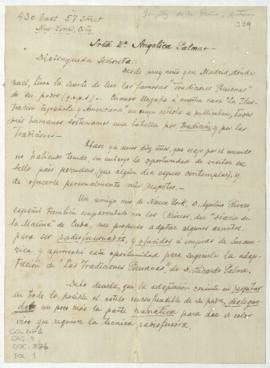 430 East 57 Street
New York, City
Srta. Dª Angélica Palma
Distinguida Señorita:
Desde muy niño y en Madrid donde
nací, tuve la suerte de leer las famosas "Tradiciones Peruanas"
de su padre (q.e.p.d.). Cuando llegaba a nuestra casa "La Ilus-
tración Española y Americana" en cuya revista se publicaban,
mis hermanos sosteníamos una batalla por tradición y por las
Tradiciones.
Hace ya unos diez años, que viajo por el mundo,
no habiendo tenido sin embargo la oportunidad de visitar su
bello país peruano, (que algún día espero contemplar), y
de ofrecerle personalmente mis respetos.
Un amigo mío de Nueva York, D. Agustín
español también emparentado con los del "Diario de
la Marina" de Cuba, me propuso adaptar algunos asuntos,
para ser radiofusionados, y ofrecidos a empresas de Suramé-
rica, y aproveché esta oportunidad para sugerirle la adap-
tación de "Las Tradiciones Peruanas" de D. Ricardo Palma.
Sólo desearía, que la adaptación consista en respetar
en todo lo posible el estilo inconfundible de su padre,
un poco más la parte narrativa para dar el colo-
rido que requiere la técnica radiofusora.